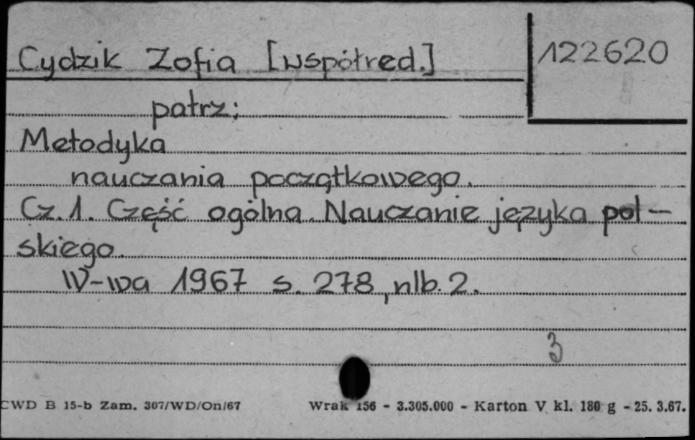 Cydzik Zofia [współred.] 122620
patrz:
Metodyka
nauczania początkowego.
Cz. 1. Część ogólna. Nauczanie języka pol-
skiego.
W-wa 1967 s. 278, nlb. 2.
3
CWD B 15-b Zam. 307/WD/On/67 Wrak 156 - 3.305.000 - Karton V kl. 180 g - 25. 3.67.